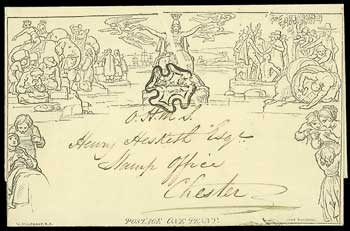 O.H.M.S.
Henry Hesketh Esqr
Stamp Office
Chester
POSTAGE ONE PENNY.